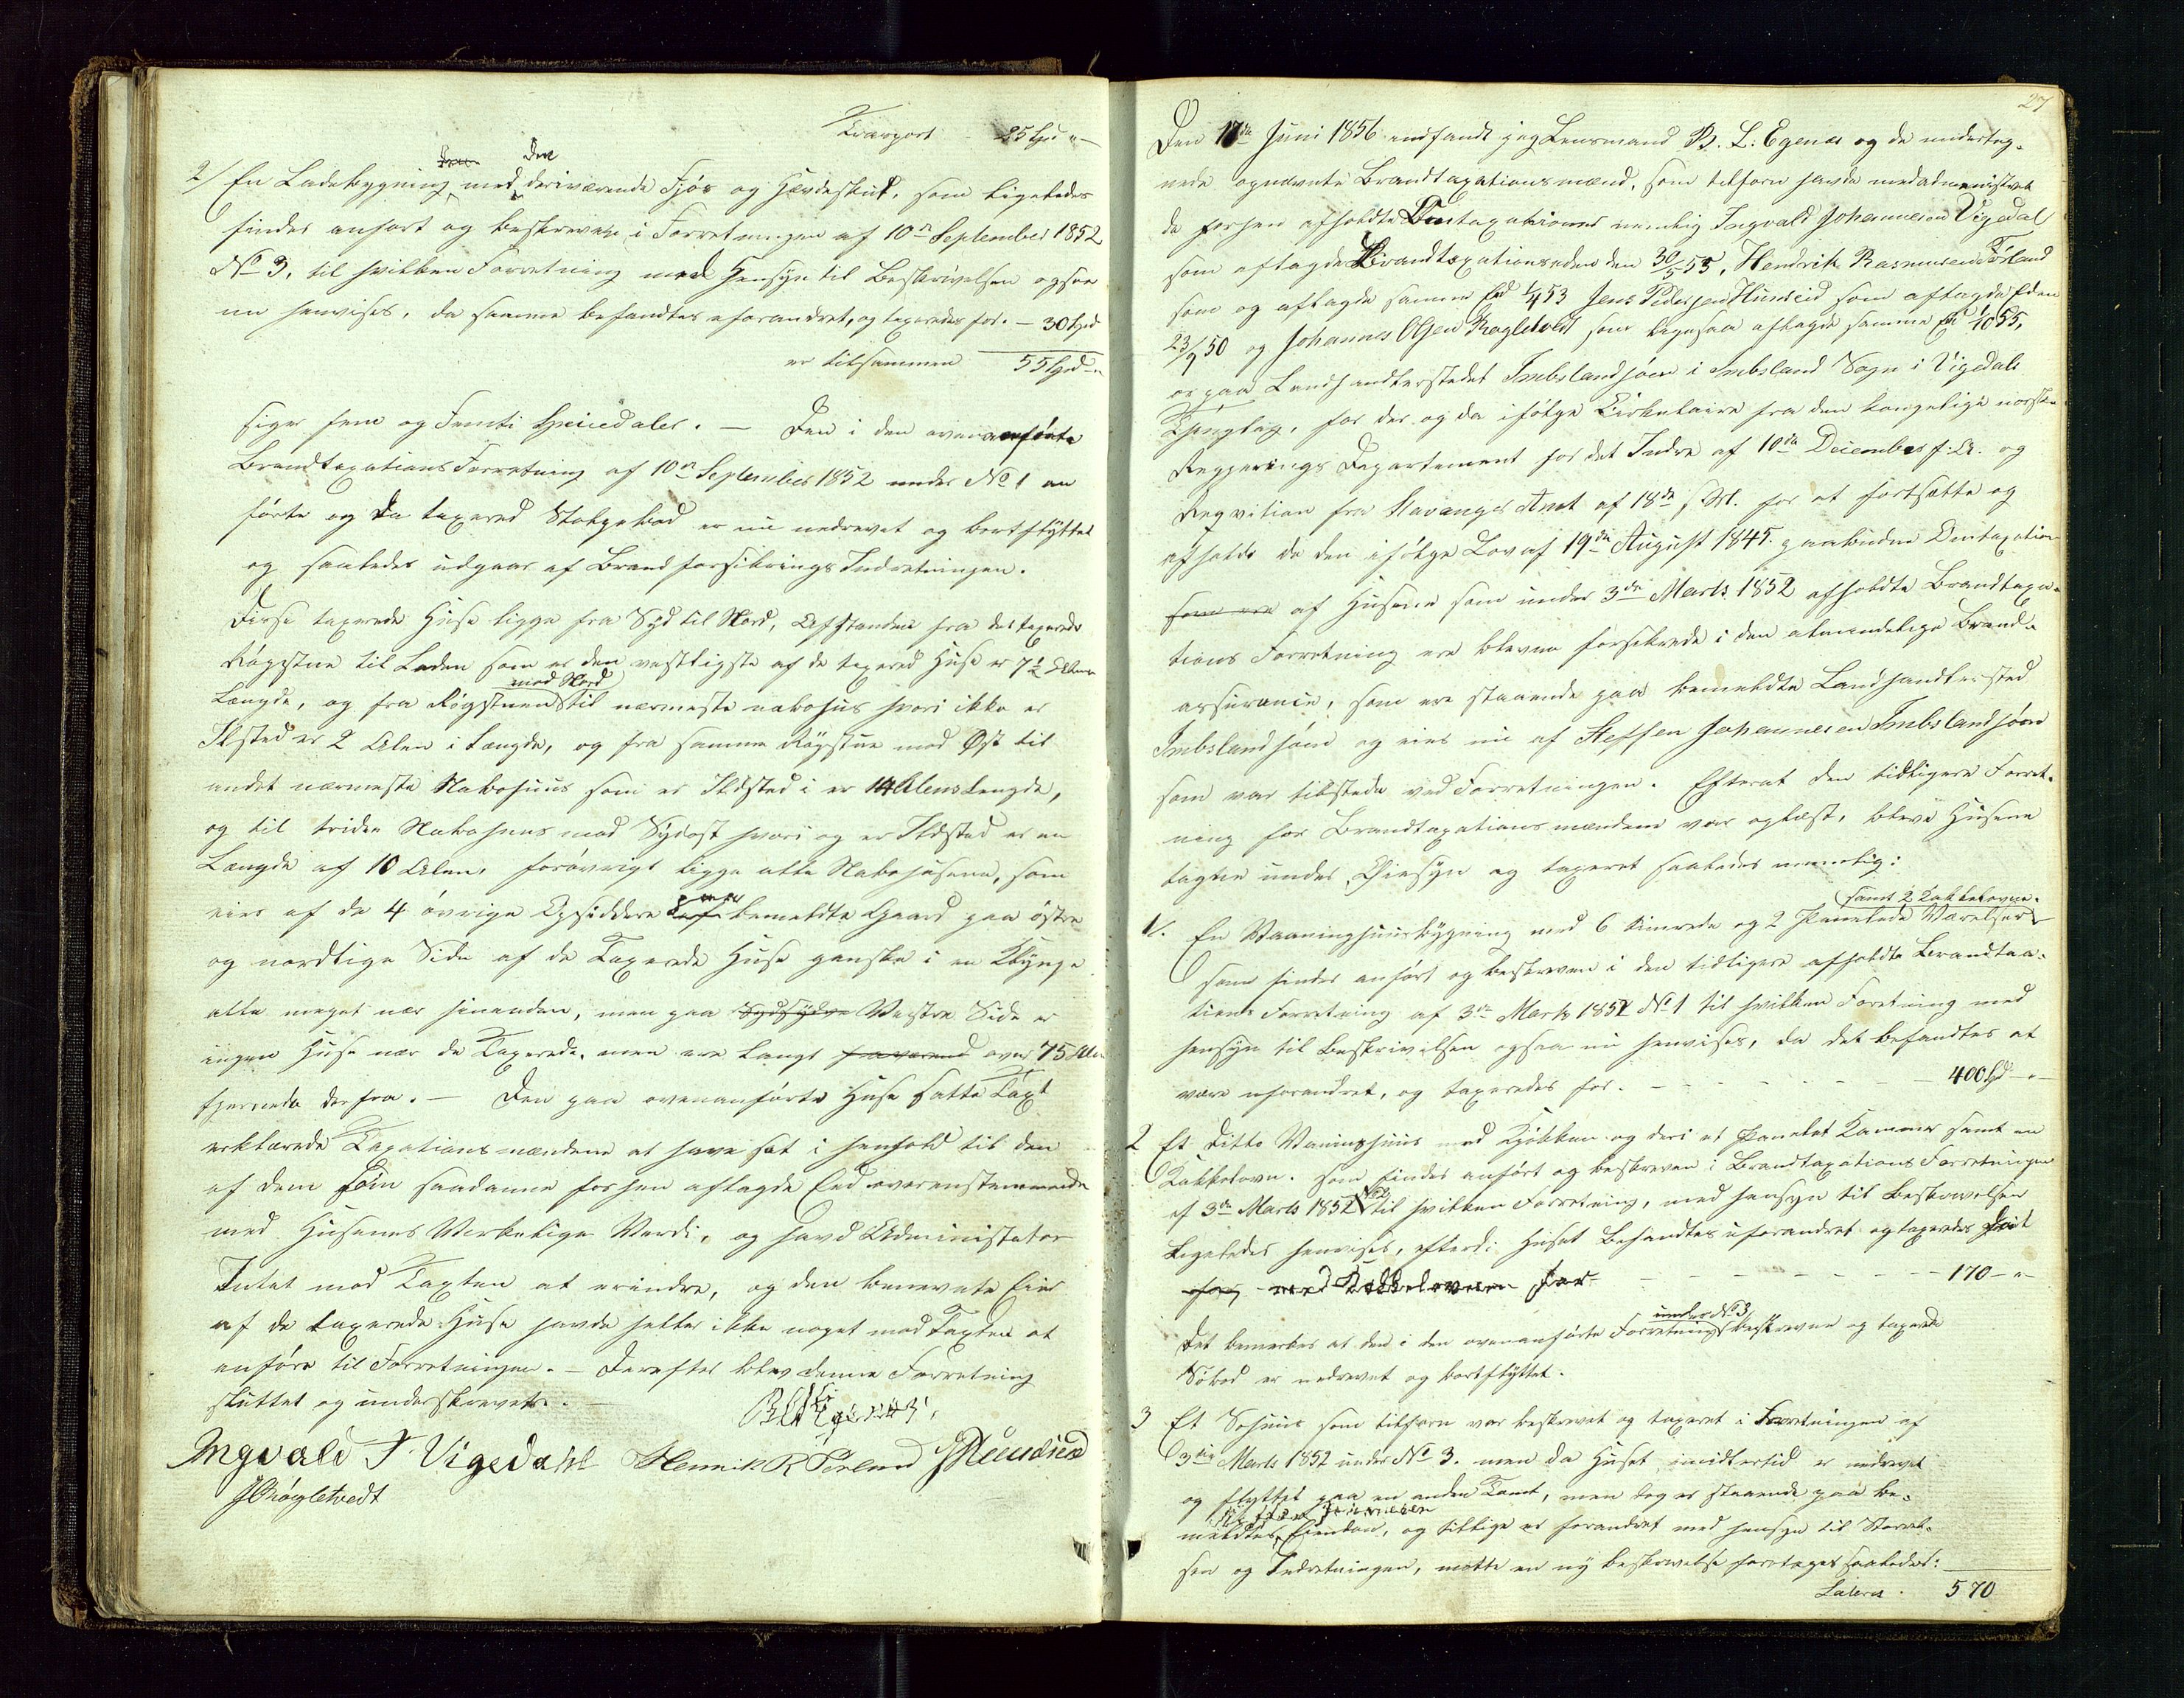 Transport 25 Spd "-
2/ En Ladebygning med den deriværende Fjøs og Hovdeskut, som ligeledes
findes anført og beskreven i Forretningen af 10de September 1852
No 3, til hvilken Forretning med Hensyn til Beskrivelsen ogsaa
nu henvises, da samme befandtes uforandret, og taxeredes for. - 30 Spd
er tilsammen 55 Spd -"
siger fem og Femti Speciedaler. - Den i den ovenanførte
Brandtaxations Forretning af 10de September 1852 under No 1 an
førte og da taxered Stolpebod er nu nedrevet og bortflyttet
og saaledes udgaar af Brandforsikrings Indretningen.
Disse taxerede Huse ligge fra Syd til Nord, Afstanden fra det taxerede
Røgstue til Laden som er den vestligste af de taxered Huse er 7½ Alens
Længde, og fra Røgstuen mod Nord til nærmeste nabohus hvori ikke er
Ildsted er 2 Alen i Længde, og fra samme Røgstue mod Øst til
andet nærmeste Nabohuus som er Ildsted i er 14 Alens Længde,
og til tridie Nabohuus mod Sydost hvori og er Ildsted er en
Længde af 10 Alen, forøvrigt ligge alle Nabohusene, som
eies af de 4 øvrige Opsiddere paa bemeldte Gaard paa østre
og nordlige Side af de Taxerede Huse ganske i en Klynge
alle meget nær hinanden, men paa Vestre Side er
ingen Huse nær de Taxerede, men ere langt over 75 Alen
fjernede derfra. - Den paa ovenanførte Huse satte Taxt
erklærede Taxationsmændene at have sat i henhold til den
af dem som saadanne forhen aflagde Eed overenstemmende
med Husenes Virkelige Verdi, og havd Administator
Intet mod Taxten at erindre, og den benevnte Eier
af de taxerede Huse havde heller ikke noget mod Taxten at
anføre til Forretningen. - Derefter blev denne Forretning
sluttet og underskrevet. -
B. L. Egenæs,
Ingvald J. Vigedahl Henrik R Førland
J Røgletvedt
27
Den 17de Juni 1856 indfandt jeg Lensmand B. L. Egenæs og de underteg-
nede opnævnte Brandtaxationsmænd, som tilforn havde medadministret
de forhen afholdte Omtaxationer nemlig Ingvald Johannesen Vigedal
som aflagde Brandtaxationseden den 30/5 53, Hendrik Rasmusen Førland
som og aflagde samme Eed 1/4 53 Jens Pedersen Hunseid som aflagde Eden
23/7 50 og Johannes Olsen Røgletvedt som ligesaa aflagde samme Eed 1/10 55,
os paa Landhandlerstedet Imbslandsjøen i Imbsland Sogn i Vigedals
Thinglag, for der og da ifølge Cirkulaire fra den kongelige norske
Regjerings Departement for det Indre af 10de December f. A. og
Reqvition fra Stavanger Amt af 18de s. M. for at fortsætte og
afholde da den ifølge Lov af 19de August 1845. paabudne Omtaxation
som ere af Husene som under 3die Marts 1852 afholdte Brandtaxa-
tions Forretning ere blevne forsikrede i den almindelige Brand-
assurance, som ere staaende paa bemeldte Landhandlersted
Imbslandsjøen og eies nu af Steffen Johannesen Imbslandsjøen
som var tilstede ved Forretningen. Efterat den tidligere Forret-
ning for Brandtaxationsmændene var oplæst, bleve Husene
tagne under Øiesyn og taxeret saaledes nemlig:
1/. En Vaaninghuusbygning med 6 Simrede og 2 Panelede Værelser samt 2 Kakkelovne.
som findes anført og beskreven i den tidligere afholdte Brandtaxa-
tions Forretning af 3die Marts 1852 No 1 til hvilken Foretning med
hensyn til Beskrivelsen ogsaa nu henvises, da det befandtes at
være uforandret, og taxeredes for. - 400 Spd -"-
2 Et Ditto Vaaningshuus med Kjøkken og deri et Panelet Kammer samt en
Kakkelovn. som findes anført og beskreven i Brandtaxations Forretningen
af 3die Marts 1852 No 2 til hvilken Forretning, med hensyn til Beskrivelsen
Ligeledes henvises, efterdi Huset Befandtes uforandret og taxeredes
med Kakkelovnen for - 170 - "-
Det bemærkes at den i den ovenanførte Forretning under No 3 beskrevne og taxerede
Søbod er nedrevet og bortflyttet.
3 Et Sohuus som tilforn var beskrevet og taxeret i Forretningen af
3die Marts 1852 under No 3. men da Huset imidlertid er nedrevet
og flyttet paa en anden Tomt, men dog er staaende paa be-
meldtes Eiendom, og tillige er forandret med hensyn til Størrel-
sen og Indretningen, motte en ny beskrivelse foretages saaledes:
Lateris. 570